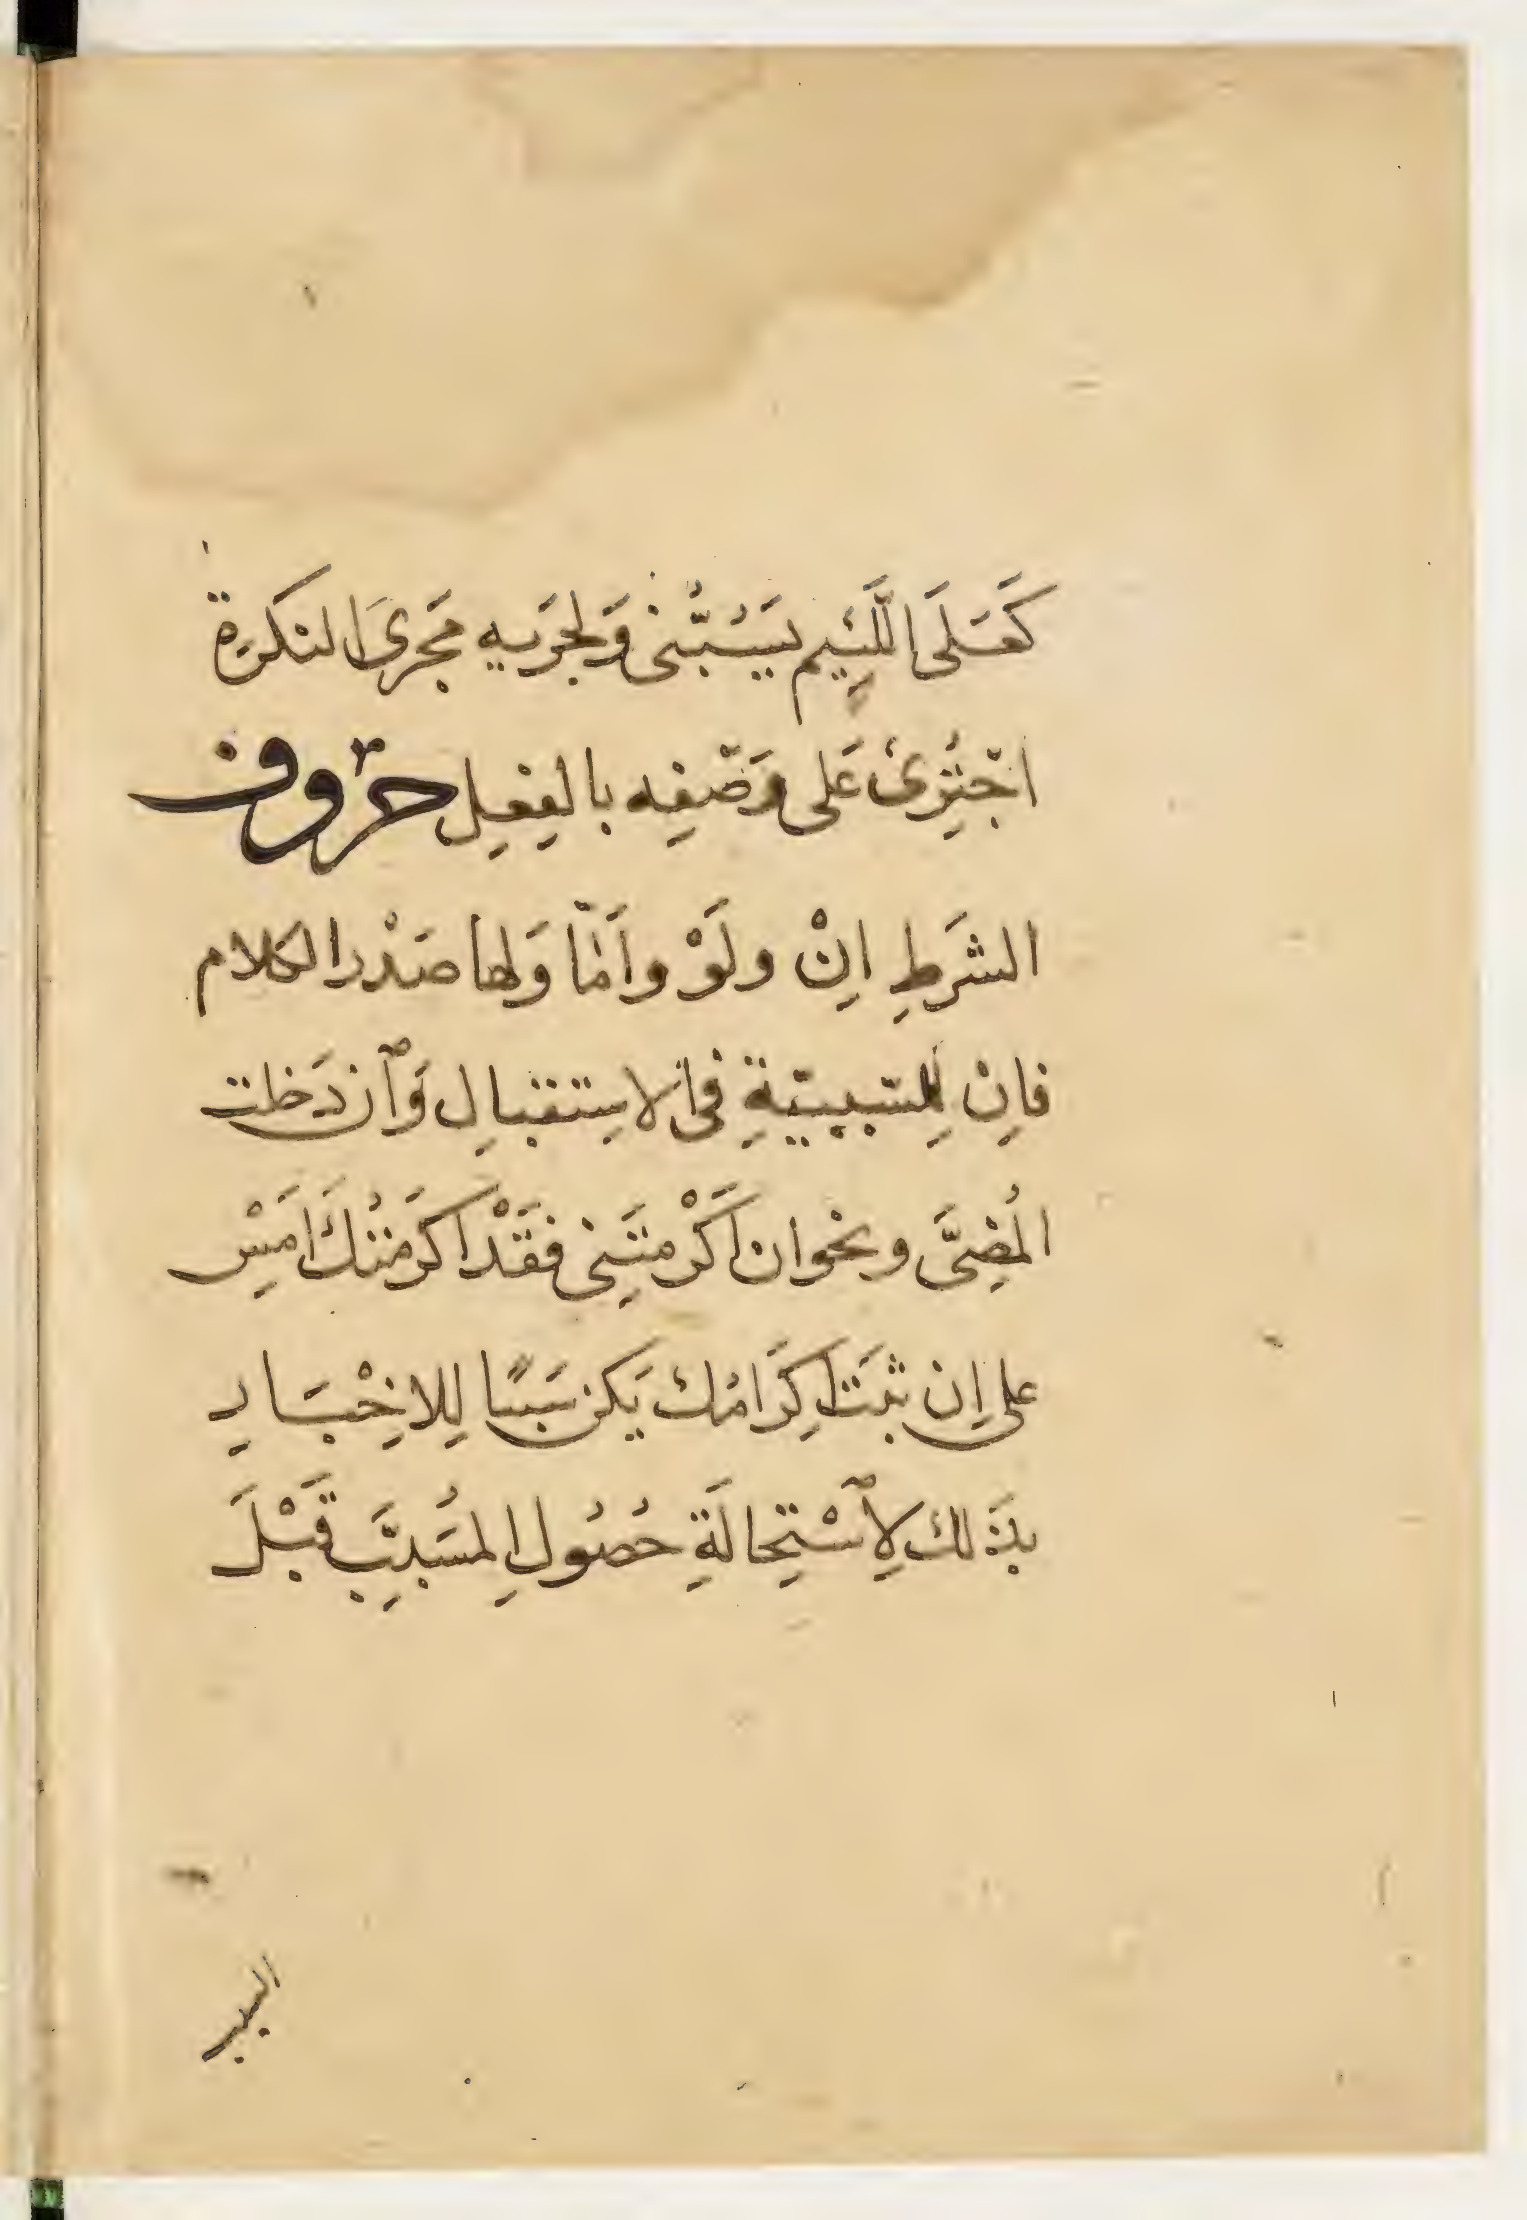 كَعَلَى اللَّئِيمِ يَسُبُّنِى وَلِجَرْيِه مَجْرَى النكرَةِ
اجْتُزِئَ عَلى وَصْفِه بالفِعْلِ حُرُوف
الشَرْطِ اِنْ ولَوْ واَمّا وَلها صَدْرُ الكلام
فاِنْ لِلسَّبَبِيَّةِ فى الاسِتقبالِ وَاِن دَخلت
المُضِىَّ ونحو ان اَكْرَمتَنِى فقَدْ اكرَمتُكَ اَمْسِ
على اِن ثبَتَ اكِرَامُك يَكن سَبَبًا لِلاِخْبَارِ
بذَلك لِاسْتِحالَةِ حُصُولِ المُسَبَّبِ قَبْلَ
السبب